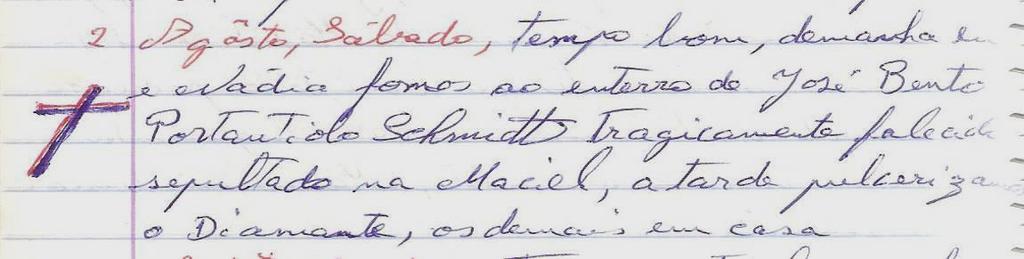 2 Agôsto, Sábado, tempo bom, demanha eu
e Nádia fomos ao enterro de José Bento
Schmidt tragicamente falecido
sepultado na Maciel, a tarde pulverizamos
o Diamante, os demais em casa